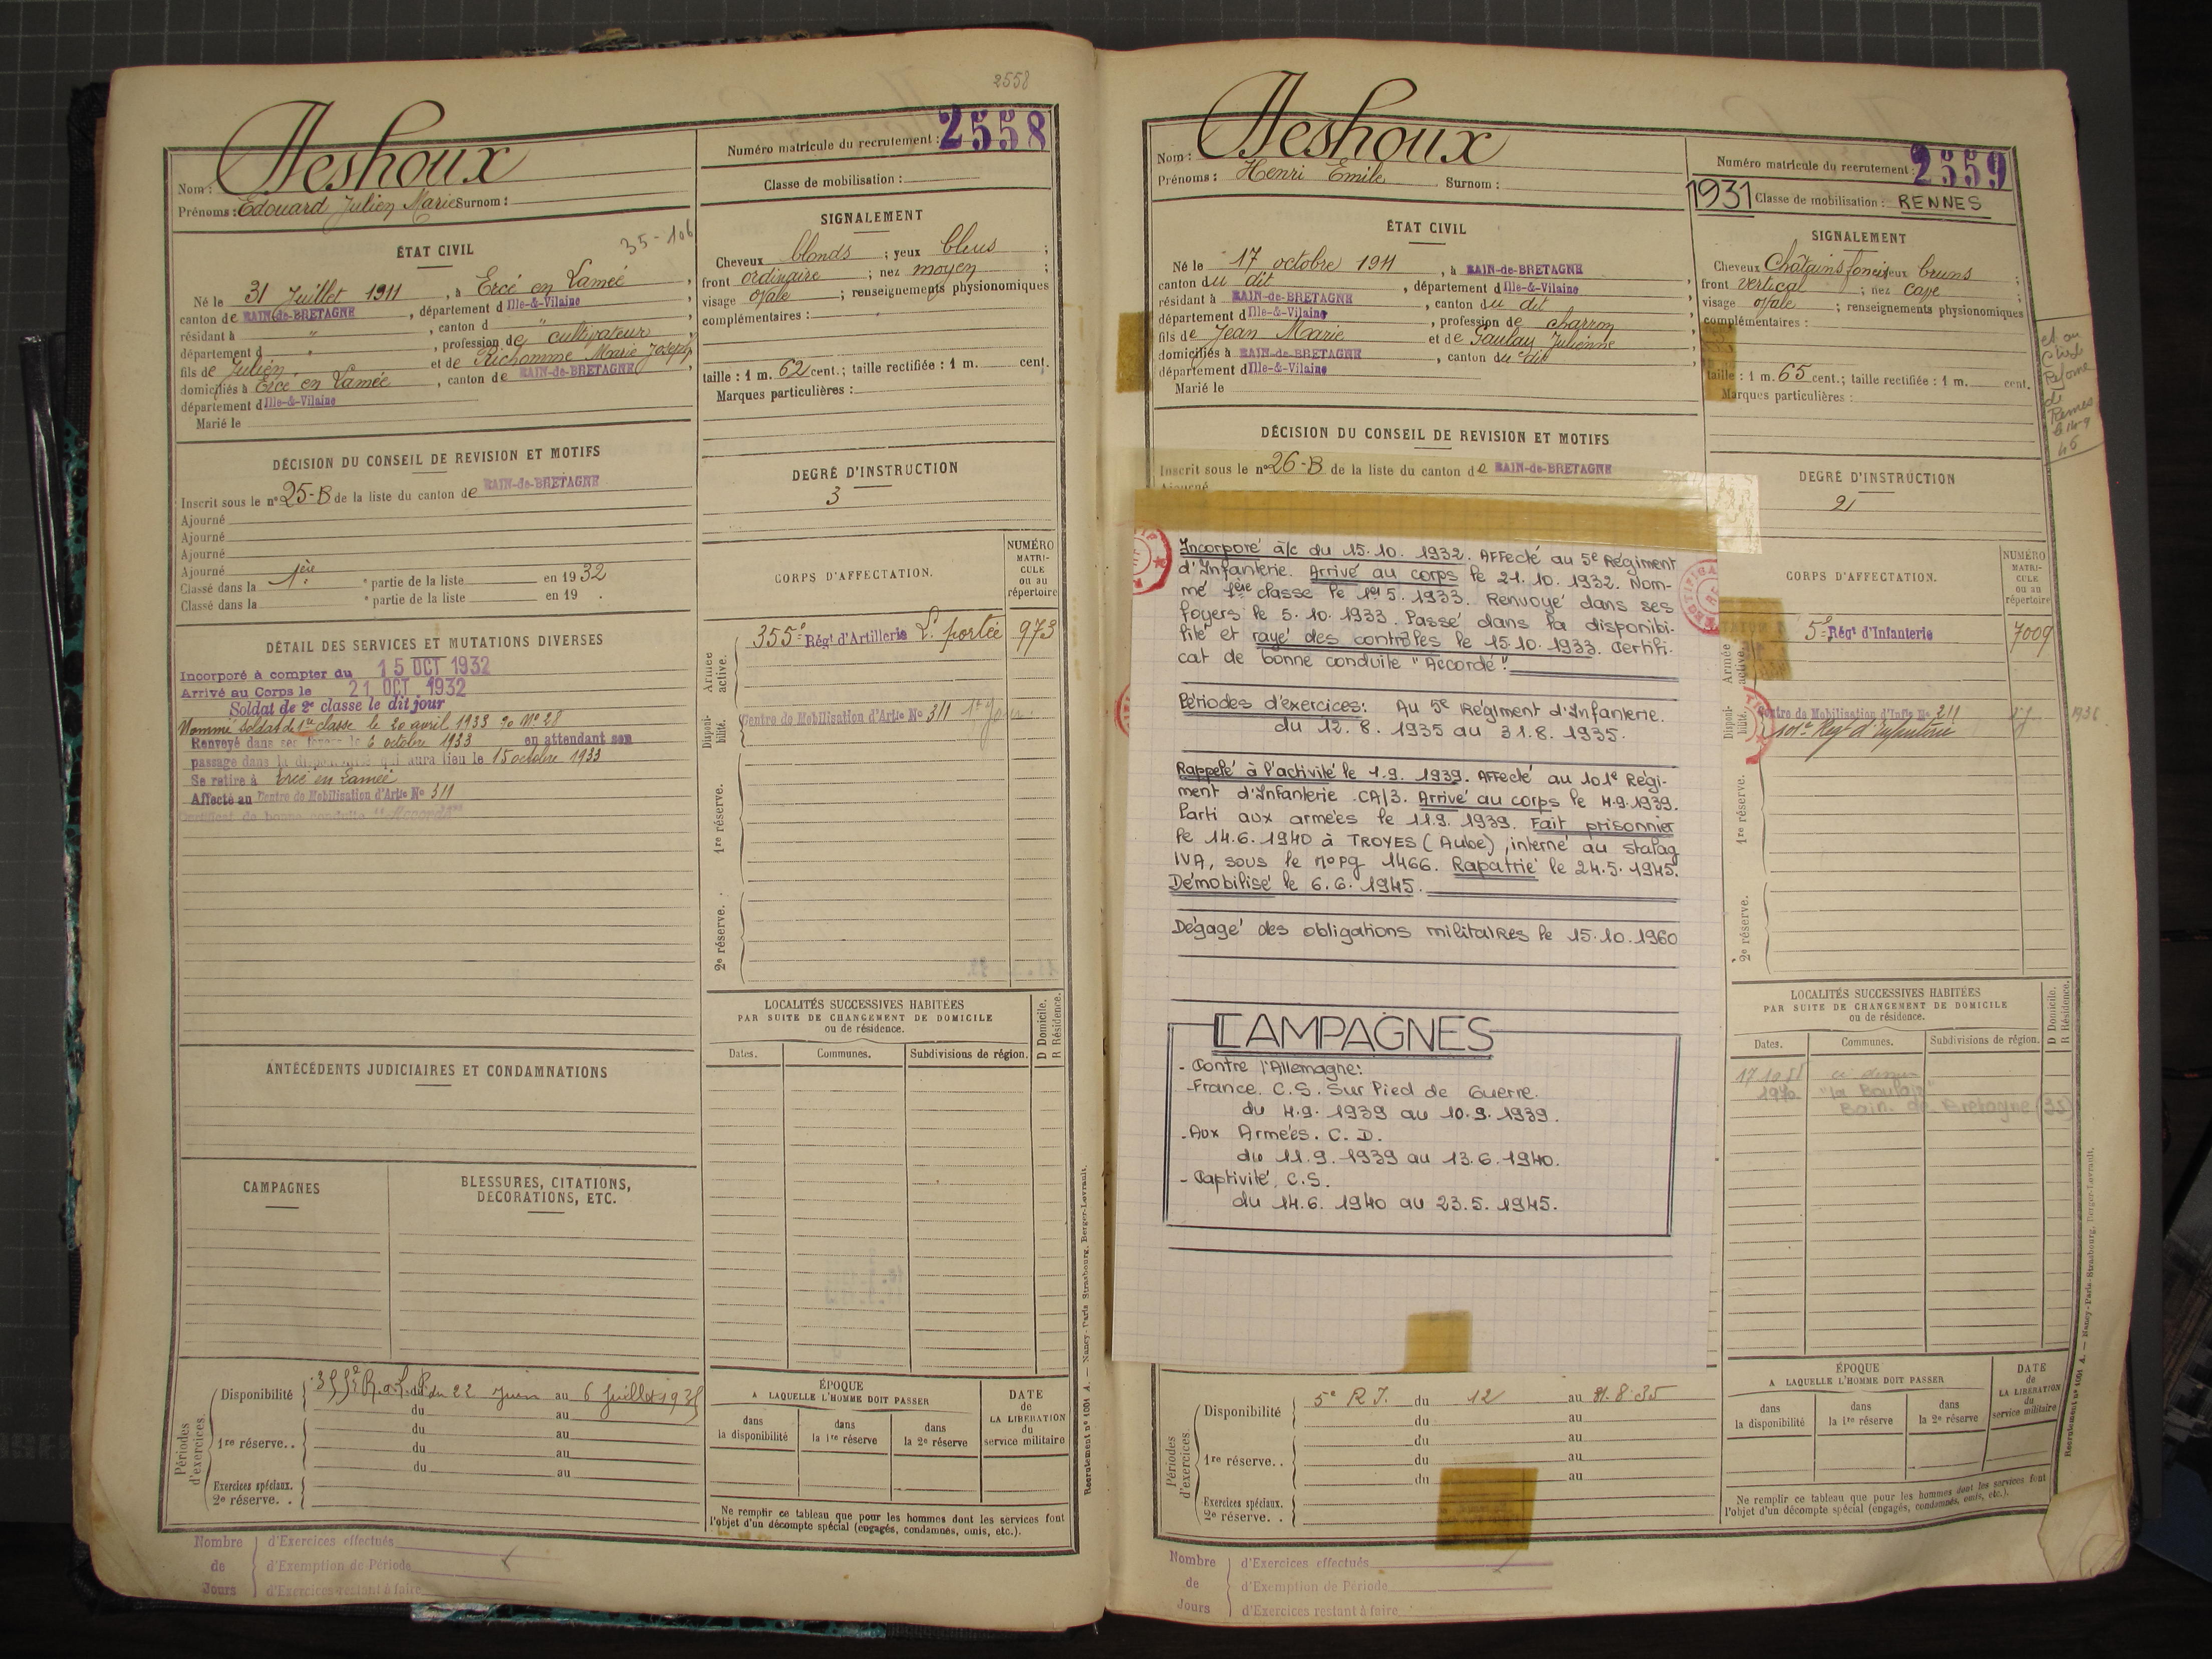 2558
Deshoux
Numéro matricule du recrutement : 2558
Nom :
Prénoms : Edouard Julien Marie Surnom :
Classe de mobilisation :
35-106
ÉTAT CIVIL
Né le 31 Juillet 1911, à Ercé en Lamée,
canton de BAIN-de-BRETAGNE, département d Ille-&-Vilaine,
résidant à ", canton d ",
département d ", profession de cultivateur,
fils de Julien et de Richomme Marie Joseph,
domiciliés à Ercé en Lamée, canton de BAIN-de-BRETAGNE,
département d Ille-&-Vilaine
Marié le
SIGNALEMENT
Cheveux blonds ; yeux bleus ;
front ordinaire ; nez moyen ;
visage ovale ; renseignements physionomiques
complémentaires :
taille : 1 m. 62 cent.; taille rectifiée : 1 m. cent.
Marques particulières :
DÉCISION DU CONSEIL DE REVISION ET MOTIFS
Inscrit sous le n° 25-B de la liste du canton de BAIN-de-BRETAGNE
Ajourné
Ajourné
Ajourné
Ajourné
Classé dans la 1ère partie de la liste en 1932
Classé dans la partie de la liste en 19 .
DEGRÉ D'INSTRUCTION
3
DÉTAIL DES SERVICES ET MUTATIONS DIVERSES
Incorporé à compter du 15 OCT 1932
Arrivé au Corps le 21 OCT 1932
Soldat de 2e classe le dit jour
Nommé soldat de 1re classe le 20 avril 1933 N° 28
Renvoyé dans ses foyers le 6 octobre 1933 en attendant son
passage dans la disponibilité qui aura lieu le 15 octobre 1933
Se retire à Ercé en Lamée
Affecté au Centre de Mobilisation d'Artie No 311
Certificat de bonne conduite "Accordé"
CORPS D'AFFECTATION.
NUMÉRO
MATRI-
CULE
ou au
répertoire
Armée
active.
355e Régt d'Artillerie L. portée 973
Disponi-
bilité.
Centre de Mobilisation d'Artie No 311
1re réserve.
2e réserve.
LOCALITÉS SUCCESSIVES HABITÉES
PAR SUITE DE CHANGEMENT DE DOMICILE
ou de résidence.
D Domicile.
R Résidence.
Dates. Communes. Subdivisions de région.
ANTÉCÉDENTS JUDICIAIRES ET CONDAMNATIONS
CAMPAGNES
BLESSURES, CITATIONS,
DÉCORATIONS, ETC.
Périodes
d'exercices.
Disponibilité du 22 Juin au 6 Juillet 1935
du au
1re réserve. . du au
du au
du au
Exercices spéciaux.
2e réserve. .
ÉPOQUE
A LAQUELLE L'HOMME DOIT PASSER
dans
la disponibilité
dans
la 1re réserve
dans
la 2e réserve
DATE
de
LA LIBÉRATION
du
service militaire
Ne remplir ce tableau que pour les hommes dont les services font
l'objet d'un décompte spécial (engagés, condamnés, omis, etc.).
Recrutement n° 1001 A. — Nancy-Paris-Strasbourg, Berger-Levrault.
Nombre
de
Jours
d'Exercices effectués
d'Exemption de Période
d'Exercices restant à faire
Deshoux
Numéro matricule du recrutement : 2559
Nom :
Prénoms : Henri Emile Surnom :
1931 Classe de mobilisation : RENNES
ÉTAT CIVIL
Né le 17 octobre 1911, à BAIN-de-BRETAGNE
canton du dit, département d Ille-&-Vilaine
résidant à BAIN-de-BRETAGNE, canton du dit
département d Ille-&-Vilaine, profession de charron
fils de Jean Marie et de Gaulay Julienne
domiciliés à BAIN-de-BRETAGNE, canton du dit
département d Ille-&-Vilaine
Marié le
SIGNALEMENT
Cheveux Châtains foncés yeux bruns ;
front vertical ; nez cave ;
visage ovale ; renseignements physionomiques
complémentaires :
taille : 1 m. 65 cent.; taille rectifiée : 1 m. cent.
Marques particulières :
DÉCISION DU CONSEIL DE REVISION ET MOTIFS
Inscrit sous le n° 26-B de la liste du canton de BAIN-de-BRETAGNE
Ajourné
DEGRÉ D'INSTRUCTION
2
Incorporé à/c du 15.10.1932. Affecté au 5e Régiment
d'Infanterie. Arrivé au corps le 21.10.1932. Nom-
mé 1ère classe le 1er 5.1933. Renvoyé dans ses
foyers le 5.10.1933. Passé dans la disponibi-
lité et rayé des contrôles le 15.10.1933. Certifi-
cat de bonne conduite "Accordé".
Périodes d'exercices: Au 5e Régiment d'Infanterie.
du 12.8.1935 au 31.8.1935.
Rappelé à l'activité le 1.9.1939. Affecté au 101e Régi-
ment d'Infanterie CA/3. Arrivé au corps le 4.9.1939.
Parti aux armées le 11.9.1939. Fait prisonnier
le 14.6.1940 à TROYES (Aube), interné au Stalag
IVA, sous le n°Pg 1466. Rapatrié le 24.5.1945.
Démobilisé le 6.6.1945.
Dégagé des obligations militaires le 15.10.1960
CAMPAGNES
- Contre l'Allemagne:
-France. C.S. Sur Pied de Guerre.
du 4.9.1939 au 10.9.1939.
-Aux Armées. C.D.
du 11.9.1939 au 13.6.1940.
- Captivité, C.S.
du 14.6.1940 au 23.5.1945.
CORPS D'AFFECTATION.
NUMÉRO
MATRI-
CULE
ou au
répertoire
Armée
active.
5e Régt d'Infanterie 7009
Disponi-
bilité.
Centre de Mobilisation d'Infie No 211 1936
101e Régt d'Infanterie
1re réserve.
2e réserve.
LOCALITÉS SUCCESSIVES HABITÉES
PAR SUITE DE CHANGEMENT DE DOMICILE
ou de résidence.
D Domicile.
R Résidence.
Dates. Communes. Subdivisions de région.
ci dessus
1970
Bain de Bretagne (35)
Périodes
d'exercices.
Disponibilité 5e R I. du 12 au 31.8.35
du au
1re réserve. . du au
du au
du au
Exercices spéciaux.
2e réserve. .
ÉPOQUE
A LAQUELLE L'HOMME DOIT PASSER
dans
la disponibilité
dans
la 1re réserve
dans
la 2e réserve
DATE
de
LA LIBÉRATION
du
service militaire
Ne remplir ce tableau que pour les hommes dont les services font
l'objet d'un décompte spécial (engagés, condamnés, omis, etc.).
Recrutement n° 1001 A. — Nancy-Paris-Strasbourg, Berger-Levrault.
Nombre
de
Jours
d'Exercices effectués
d'Exemption de Période
d'Exercices restant à faire